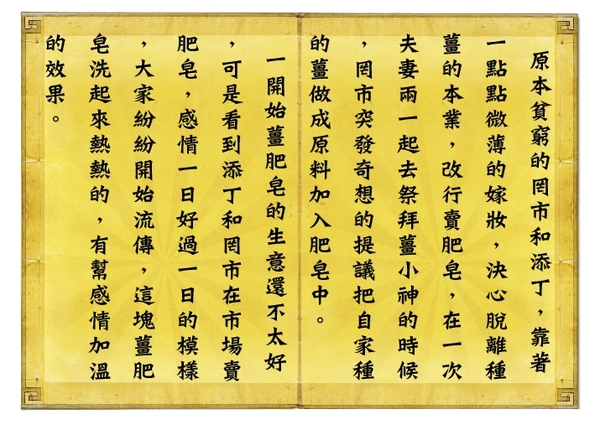 原本貧窮的罔市和添丁，靠著
一點點微薄的嫁妝，決心脫離種
薑的本業，改行賣肥皂，在一次
夫妻兩一起去祭拜薑小神的時候
，罔市突發奇想的提議把自家種
的薑做成原料加入肥皂中。
一開始薑肥皂的生意還不太好
，可是看到添丁和罔市在市場賣
肥皂，感情一日好過一日的模樣
，大家紛紛開始流傳，這塊薑肥
皂洗起來熱熱的，有幫感情加溫
的效果。